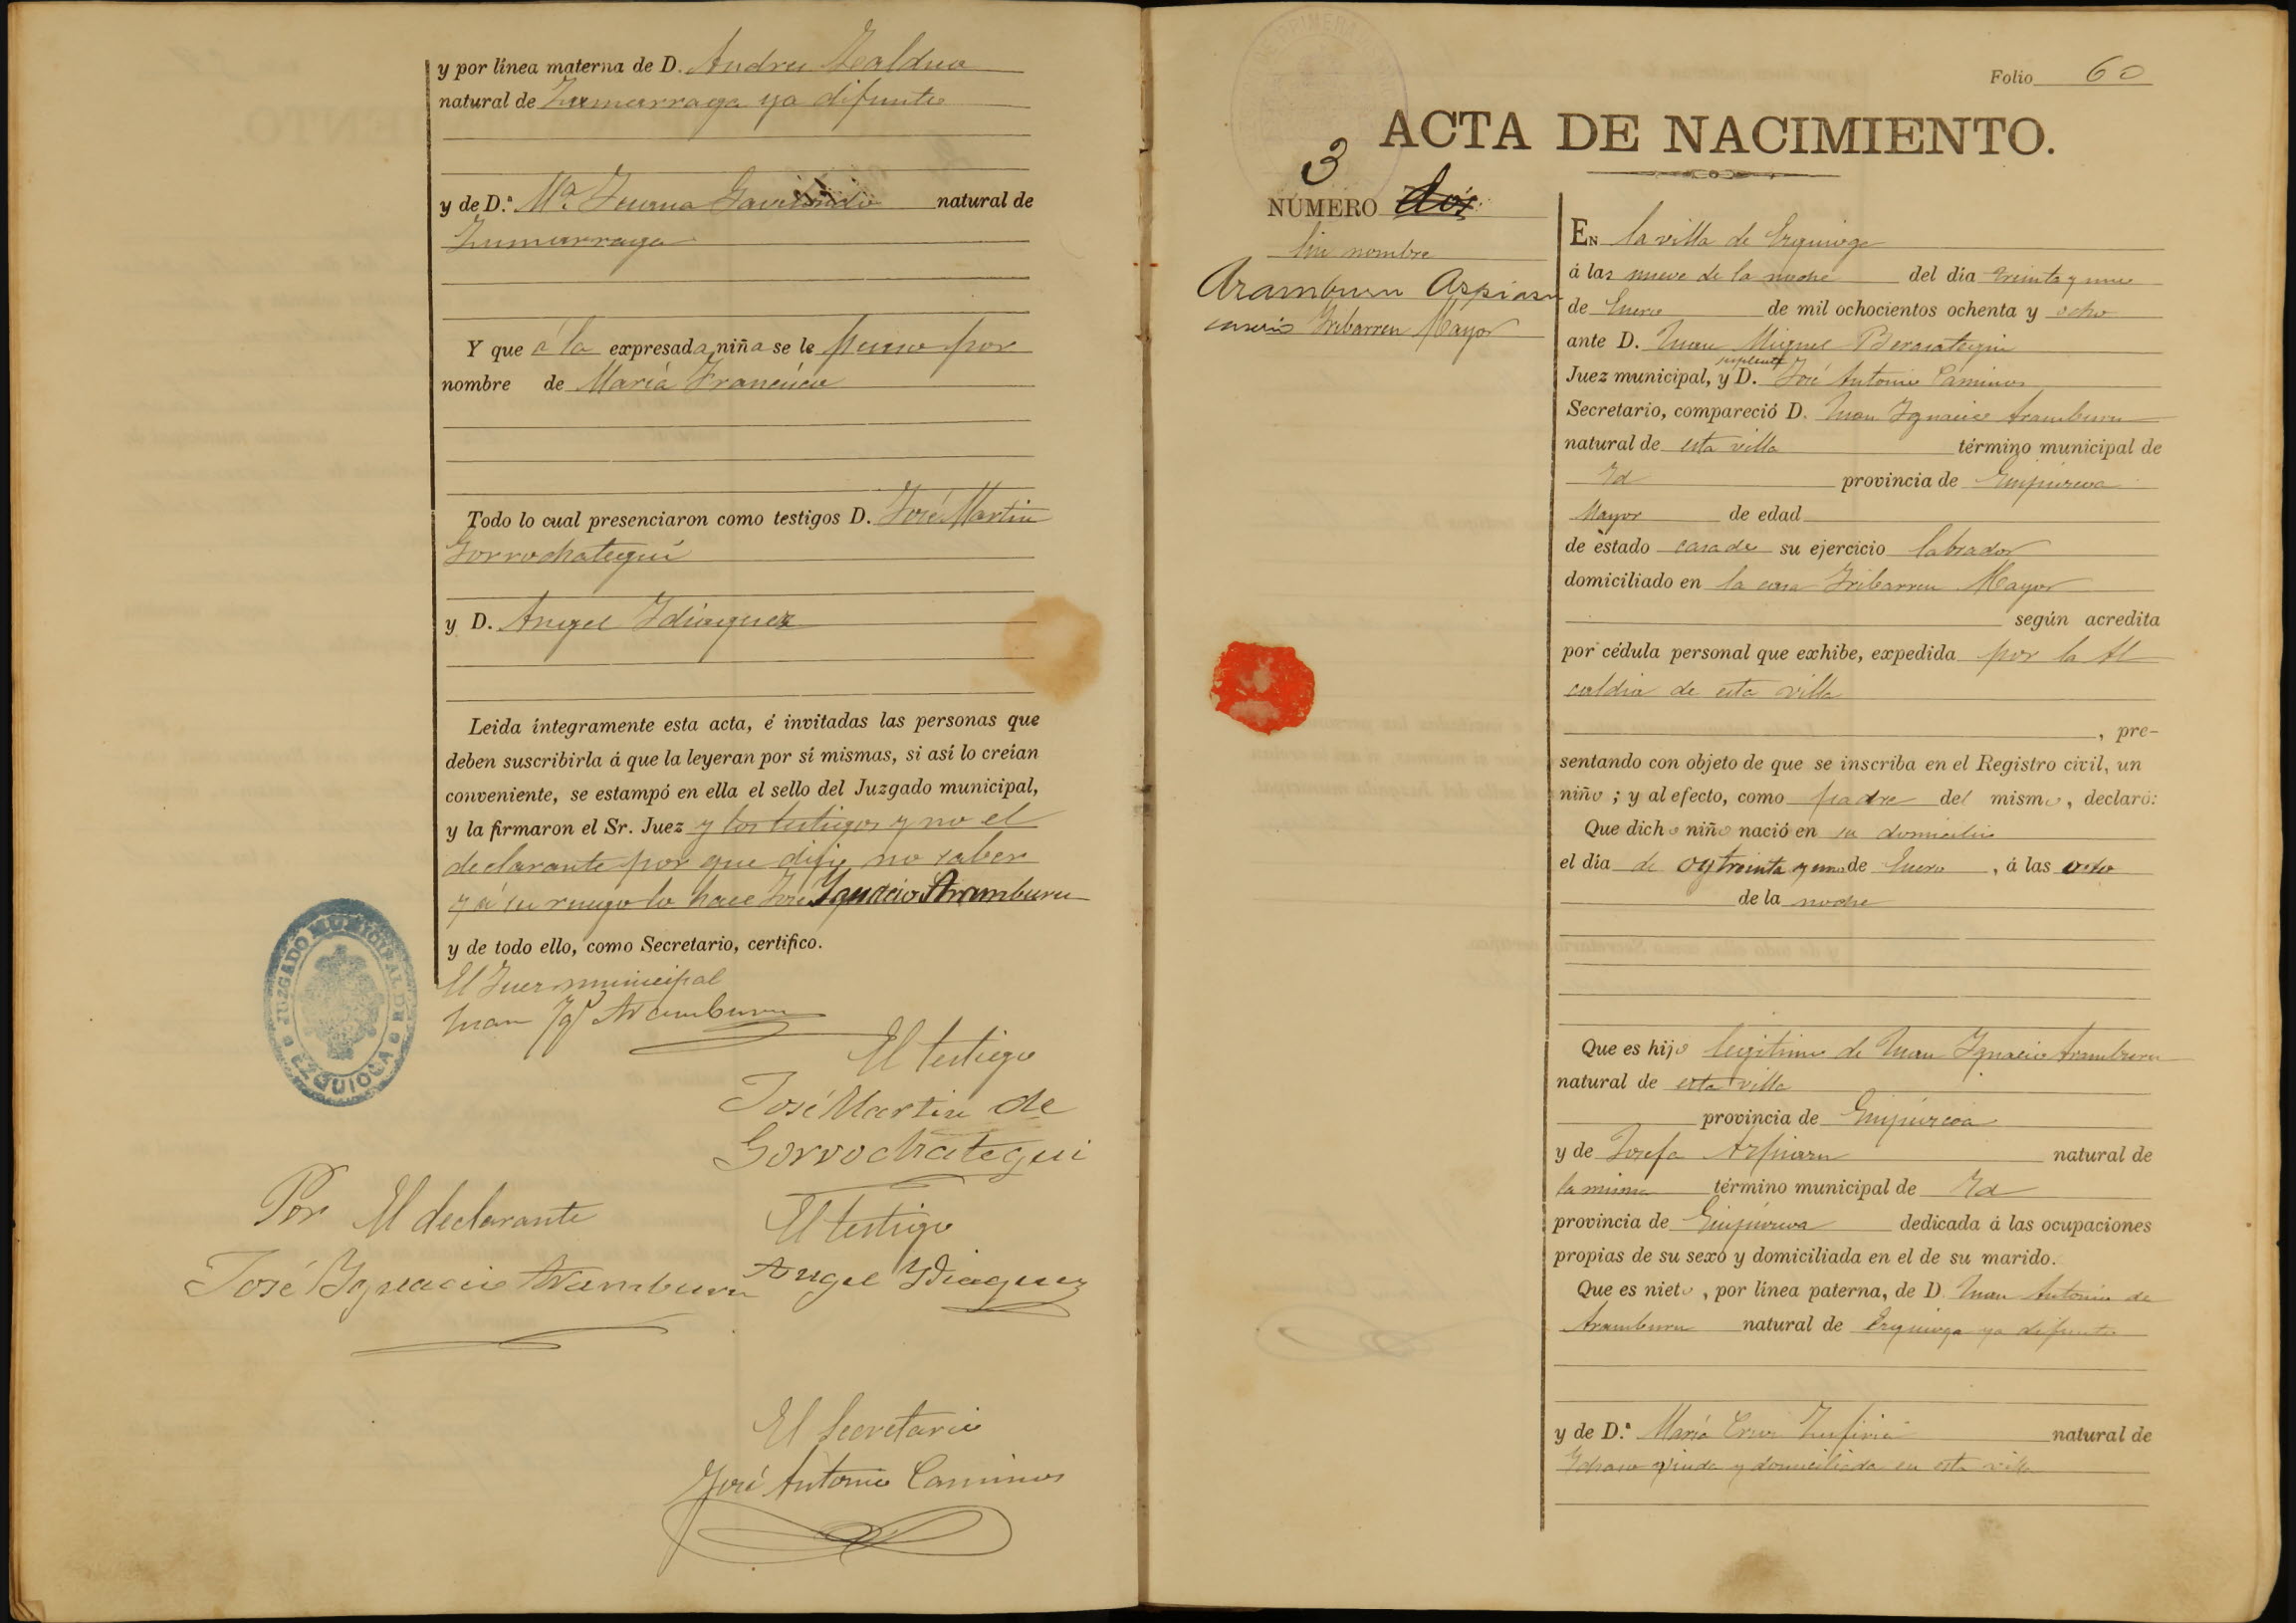 y por línea materna de D. Andres Zaldua
natural de Zumarraga ya difunto
y de D.ª Mª Juana Gavilondo natural de
Zumarraga
Y que á la expresada niña se le puso por
nombre de María Francisca
Todo lo cual presenciaron como testigos D. José Martin
Gorrochategui
y D. Angel Idiaquez
Leida íntegramente esta acta, é invitadas las personas que
deben suscribirla á que la leyeran por sí mismas, si así lo creían
conveniente, se estampó en ella el sello del Juzgado municipal,
y la firmaron el Sr. Juez y los testigos y no el
declarante por que dijo no saber
y á su ruego lo hace José Ygnacio Aramburu
y de todo ello, como Secretario, certifico.
El Juez municipal
Juan Ygº Aramburu
JUZGADO MUNICIPAL DE EZQUIOGA
El testigo
José Martin de
Gorrochategui
Por El declarante
José Ygnacio Aramburu
El testigo
Angel Ydiaquez
El Secretario
José Antonio Caminos
Folio 60
ACTA DE NACIMIENTO.
3
NÚMERO dos
Sin nombre
Aramburu Aspiazu
caserio Yribarren Mayor
EN la villa de Ezquioga
á las nueve de la noche del día treinta y uno
de Enero de mil ochocientos ochenta y ocho
ante D. Juan Miguel Berasategui
suplente
Juez municipal, y D. José Antonio Caminos
Secretario, compareció D. Juan Ygnacio Aramburu
natural de esta villa término municipal de
Yd provincia de Guipúzcoa
Mayor de edad
de estado casado su ejercicio labrador
domiciliado en la casa Yribarren Mayor
según acredita
por cédula personal que exhibe, expedida por la Al
caldia de esta villa
, pre-
sentando con objeto de que se inscriba en el Registro civil, un
niño; y al efecto, como padre del mismo, declaró:
Que dicho niño nació en su domicilio
el día de oy treinta y uno de Enero, á las ocho
de la noche
Que es hijo legitimo de Juan Ygnacio Aramburu
natural de esta villa
provincia de Guipúzcoa
y de Josefa Azpiazu natural de
la misma término municipal de Yd
provincia de Guipúzcoa dedicada á las ocupaciones
propias de su sexo y domiciliada en el de su marido.
Que es nieto, por línea paterna, de D. Juan Antonio de
Aramburu natural de Ezquioga ya difunto
y de D.ª María Cruz natural de
viuda y domiciliada en esta villa